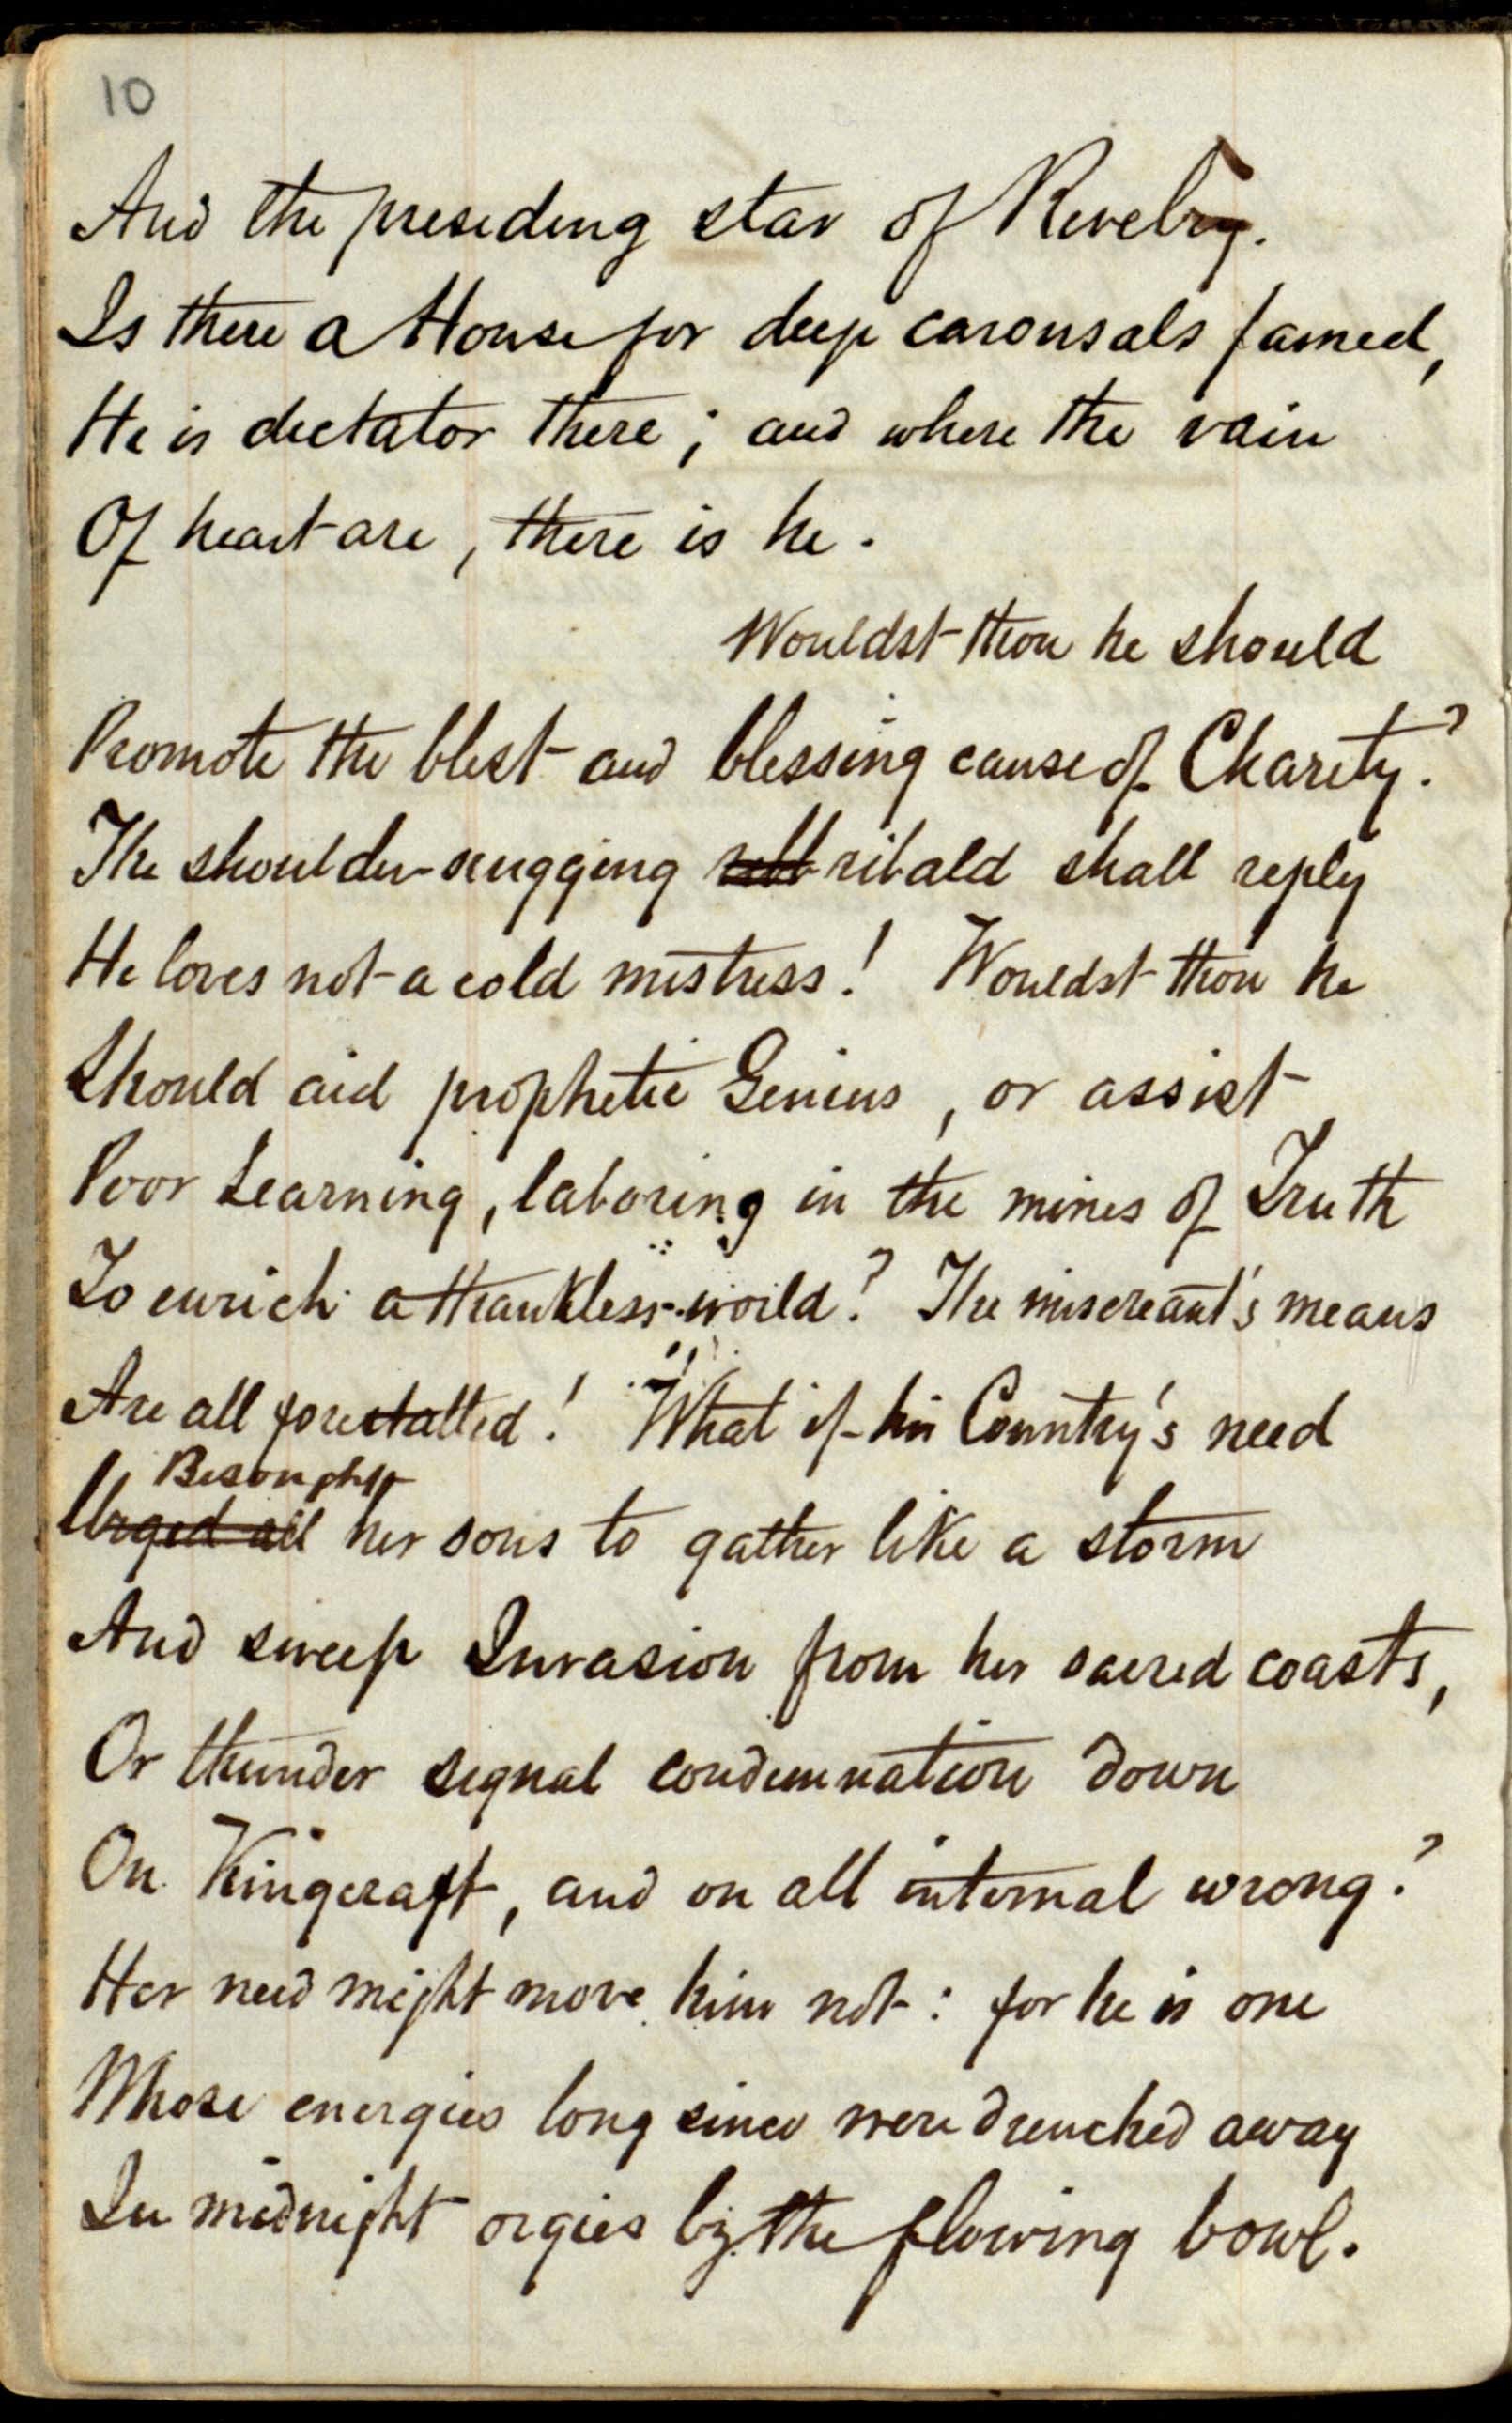 10
And the presiding star of Revelry.
Is there a House for deep carousals famed,
He is dictator there; and where the vain
Of heart are, there is he.
Wouldst thou he should
Promote the blest and blessing cause of Charity?
The shoulder-rugging ribald shall reply
He loves not a cold mistress! Wouldst thou he
Should aid prophetic Genius, or assist
Poor Learning, laboring in the mines of Truth
To enrich a thankless world? The miscreant's means
Are all forestalled! What if his Country's need
Besought
Urged all her sons to gather like a storm
And sweep Invasion from her sacred coasts,
Or thunder signal condemnation down
On Kingcraft, and on all internal wrong?
Her need might move him not: for he is one
Whose energies long since were drenched away
In midnight orgies by the flowing bowl.